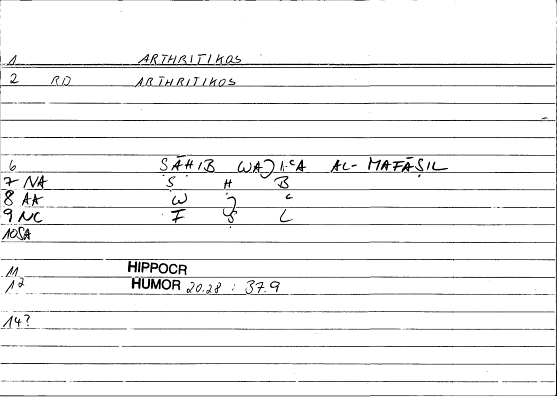 1 ARTHRITIKOS
2 RD ARTHRITIKOS
6 ṢĀḤIB WAǦIʿA AL-MAFĀṢIL
7 NA Ṣ Ḥ B
8 AA W Ǧ ʿ
9 NC F Ṣ L
10 SA
11 HIPPOCR
12 HUMOR 20.28 : 37.9
14?